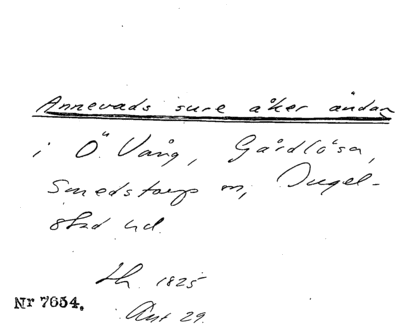 Annevads sure åker ändan
i Ö. Vång, Gårdlösa,
Smedstorp sn, Ingel-
stad hd.
Lh. 1825
Akt 29.
Nr 7654.